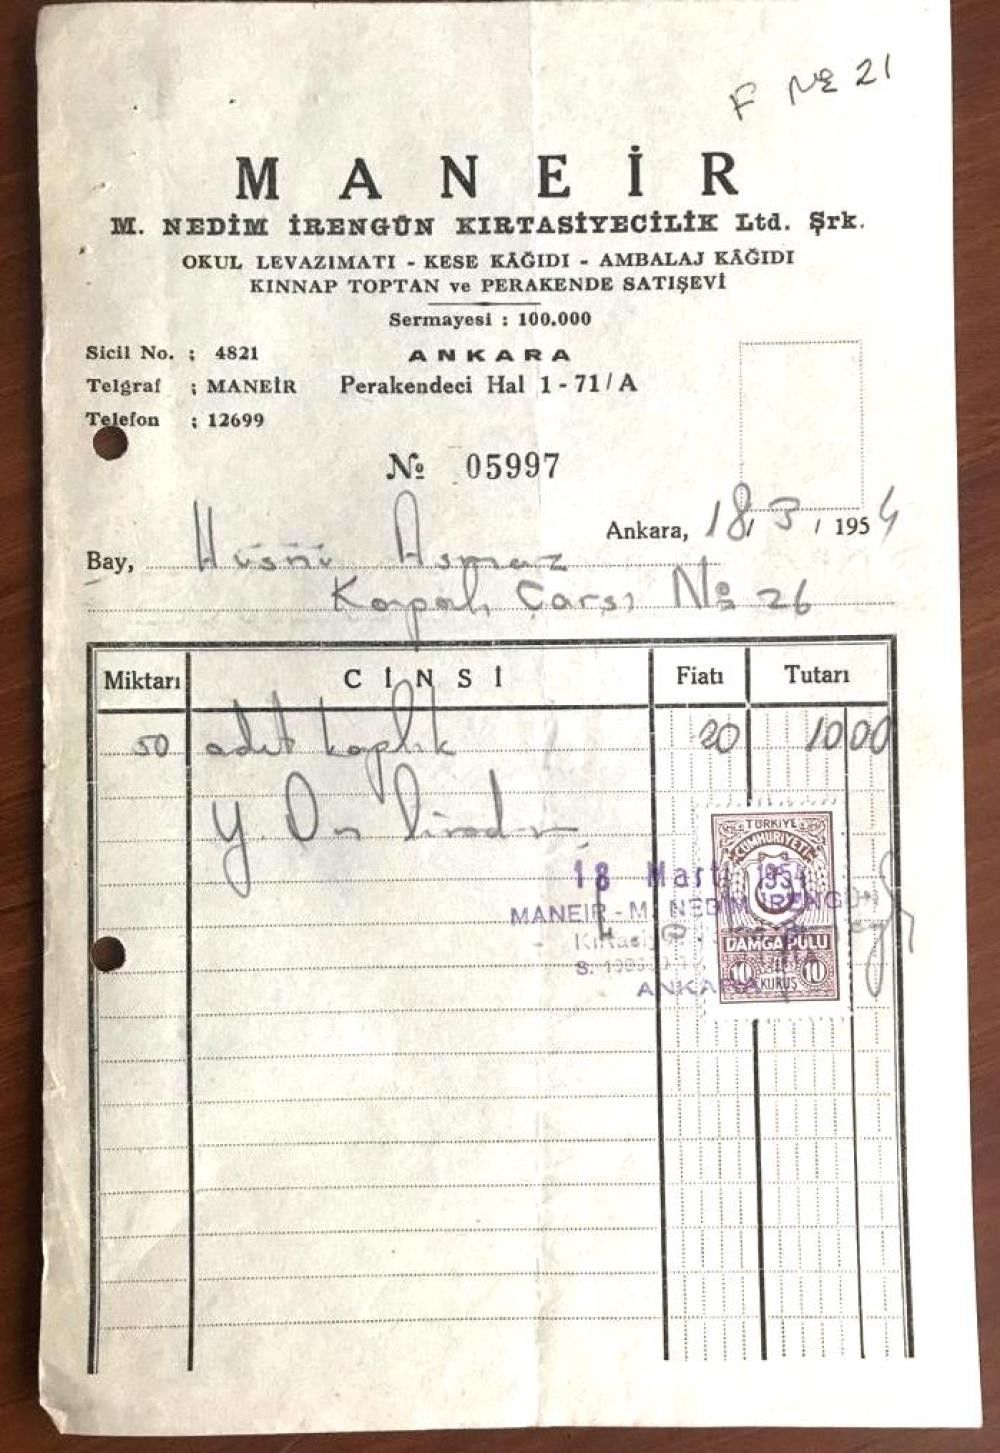 F № 21
MANEİR
M. NEDİM İRENGÜN KIRTASİYECİLİK Ltd. Şrk.
OKUL LEVAZIMATI - KESE KÂĞIDI - AMBALAJ KÂĞIDI
KINNAP TOPTAN ve PERAKENDE SATIŞEVİ
Sermayesi : 100.000
Sicil No. : 4821
ANKARA
Telgraf : MANEİR
Perakendeci Hal 1 - 71/A
Telefon : 12699
№ 05997
Ankara, 18/3/1954
Bay, Hüsnü Asmaz
Kapalı Çarşı № 26
Miktarı CİNSİ Fiatı Tutarı
50 adet kaplık 20 10 00
Y. On liradır
TÜRKİYE
CUMHURİYETİ
18 Mart 1954
MANEİR - M. NEDİM İRENG
DAMGA PULU
10 KURUŞ 10
ANKARA